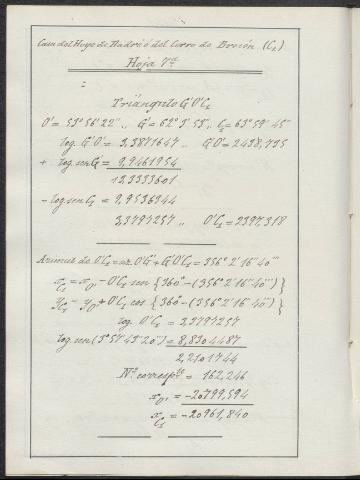 Casa del Hoyo de Madrid ó del Cerro de (C₁)
Hoja 7ª
=
Triángulo G'O'C₁
O' = 53° 56' 22" ,, G' = 62° 3' 53" ,, C₁ = 63° 59' 45"
log. G'O' = 3,3871647 ,, G'O' = 2438,735
+ log. sen G' = 9,9461954
13,3333601
- log sen C₁ = 9,9536344
3,3797257 ,, O'C₁ = 2397,318
Azimut de O'C₁ = az. O'G' + G'O'C₁ = 356° 2' 16" 40'''
x C₁ = x O' - O'C₁ sen {360° - (356° 2' 16" 40''')}
y C₁ = y O' + O'C₁ cos {360° - (356° 2' 16" 40''')}
log. O'C₁ = 3,3797257
log. sen (3° 57' 43" 20''') = 8,8304487
2,2101744
Nº correspte = 162,246
x O' = -20799,594
x C₁ = -20961,840